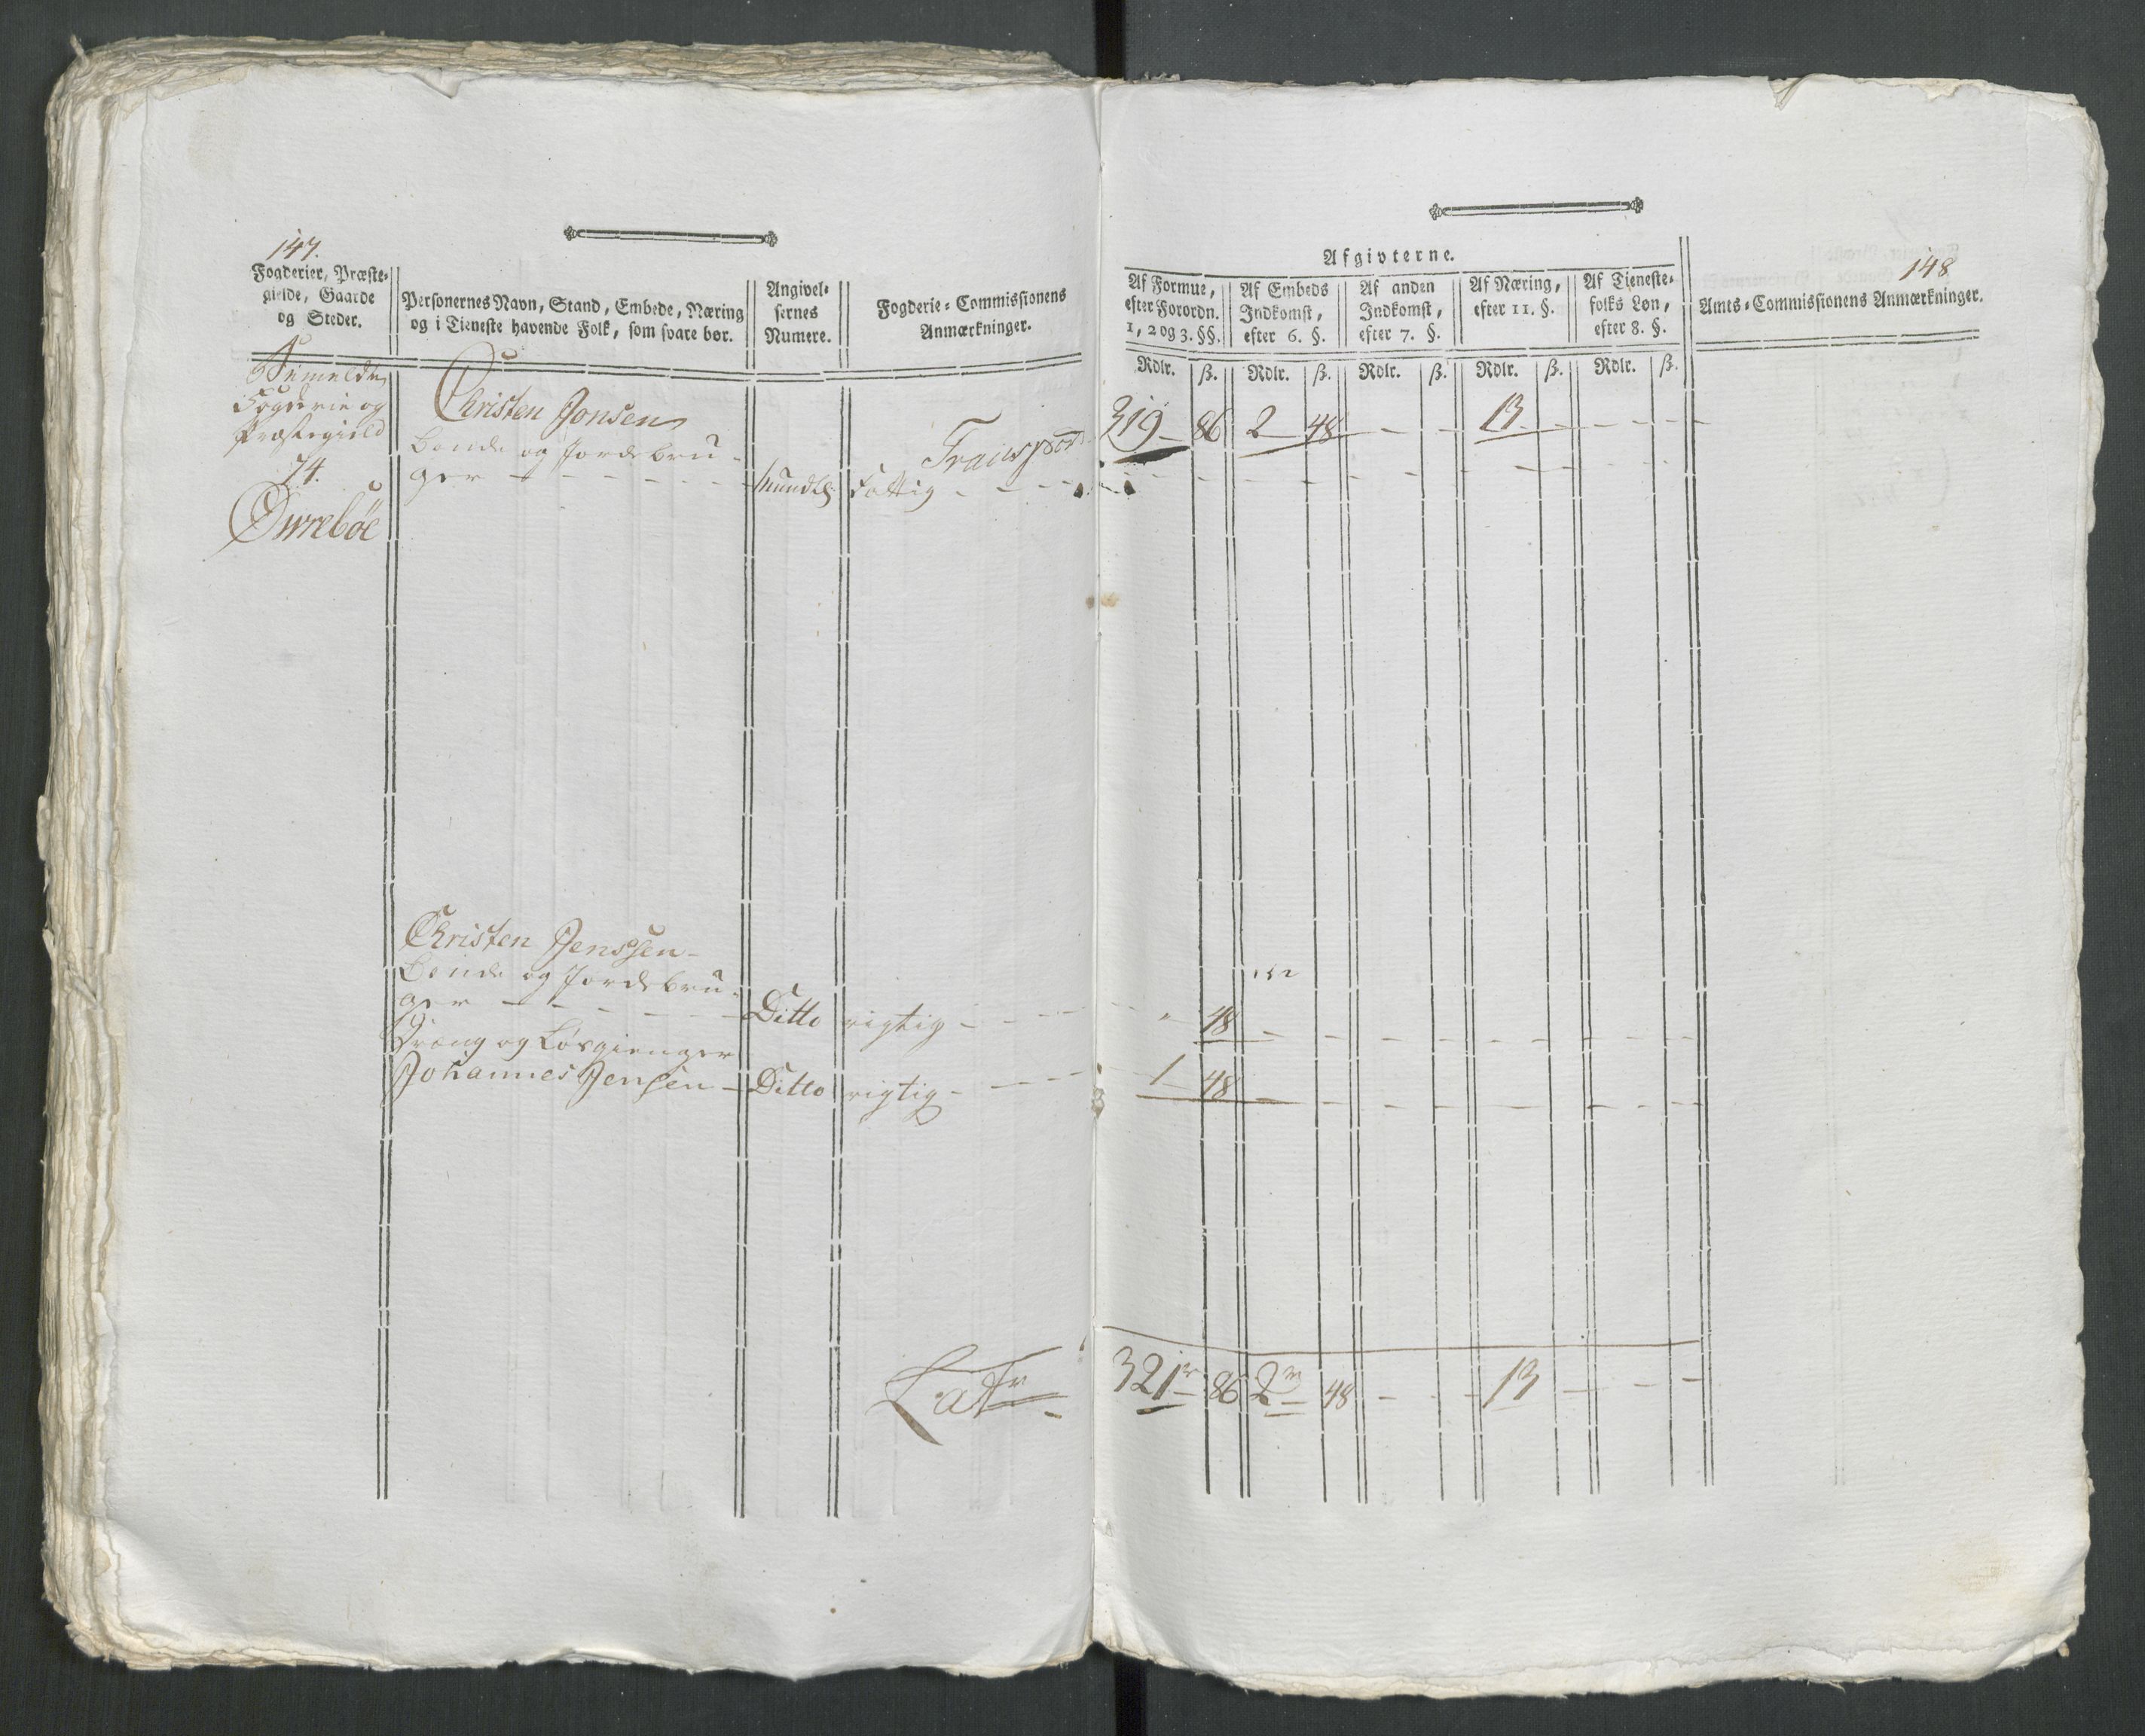 147.
Fogderier, Præste-
gielde, Gaarde
og Steder.
Personernes Navn, Stand, Embede, Næring
og i Tieneste havende Folk, som svare bør.
Angivel-
sernes
Numere.
Fogderie-Commissionens
Anmærkninger.
Bemeldte
Fogderie og
Præstegield
74.
Christen Jonsen
Bonde og Jordebru-
ger - - - - - - mundtl. Fattig - - -
Transport
Christen Jenssen -
Bonde og Jordebru-
ger - - - - - - Ditto rigtig - - -
Dreng og Løsgienger
Johannes Jensen - Ditto rigtig - - -
Latr
148
Afgivterne.
Af Formue,
efter Forordn.
1, 2 og 3. §§.
Af Embeds
Indkomst,
efter 6. §.
Af anden
Indkomst,
efter 7. §.
Af Næring,
efter 11. §.
Af Tieneste-
folks Løn,
efter 8. §.
Amts-Commissionens Anmærkninger.
Rdlr. ß. Rdlr. ß. Rdlr. ß. Rdlr. ß. Rdlr. ß.
319 - 86 2 48 - - 13 - - -
48 - - - - - - -
1 - 48 - - - - - - -
321 r 86 2 r 48 - - - 13 - - -